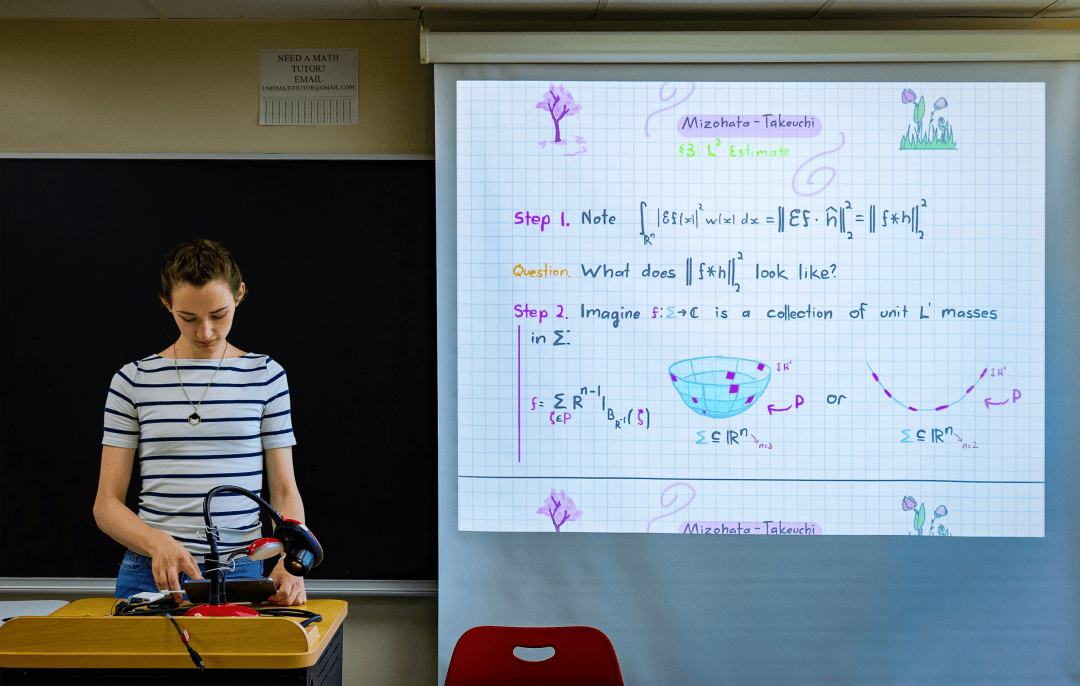 NEED A MATH
TUTOR?
EMAIL
UMDMATHTUTOR@GMAIL.COM
Mizohata - Takeuchi
§3: L² Estimate
Step 1. Note ∫_ℝⁿ |Ef(x)|² w(x) dx = ‖Ef · ĥ‖₂² = ‖f*h‖₂²
Question. What does ‖f*h‖₂² look like?
Step 2. Imagine f: Σ → ℂ is a collection of unit L¹ masses
in Σ:
f = Σ_{ζ∈P} R^{n-1} 1_{B_{R⁻¹}(ζ)}
I R⁻¹
P
or
I R⁻¹
P
Σ ⊆ ℝⁿ
n=3
Σ ⊆ ℝⁿ
n=2
Mizohata - Takeuchi